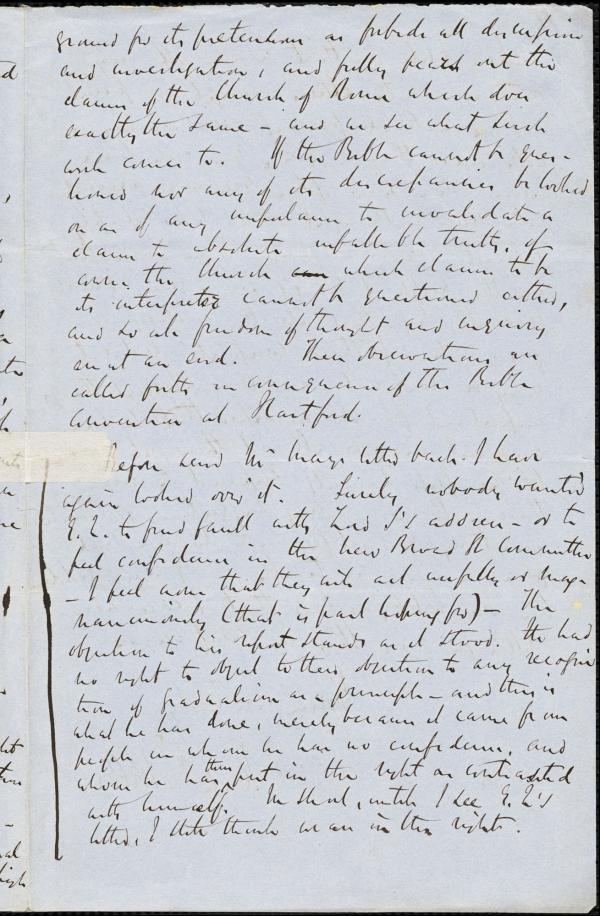 ground for its pretensions as forbids all discussion
and investigation, and fully bears out the
claims of the Church of Rome which does
exactly the same – and we see what such
work comes to. If the Bible cannot be ques-
tioned nor any of its discrepancies be looked
on as of any importance to invalidate a
claim to absolute infallible truth, of
course the Church which claims to be
its interpreter cannot be questioned either,
and so all freedom of thought and enquiry
is at an end. These observations are
called forth in consequence of the Bible
Convention at Hartford.
Before send Mr Mays letter back I have
again looked over it. Surely nobody wanted
E. Q. to find fault with Lord S's address – or to
feel confidence in the new Broad St Committee
– I feel none that they will act usefully or mag-
nanimously (that is past hoping for) – The
objection to his report stands as it stood. He had
no right to object to their objection to any recogni
tion of gradualism as a principle – and this is
what he has done, merely because it came from
people in whom he has no confidence, and
whom he has then put in the right as contrasted
with himself. In short, until I see E. Q's
letter, I still think we are in the right.